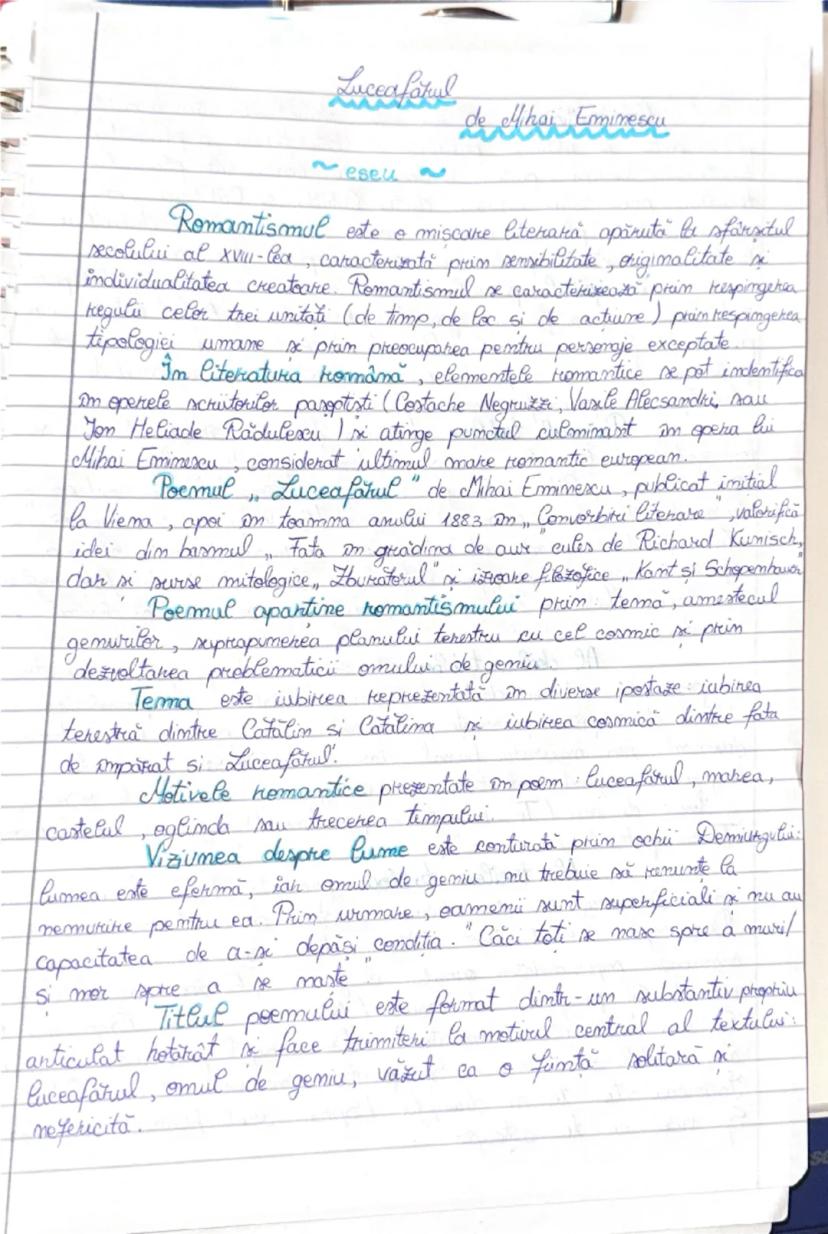 Luceafărul
de Mihai Eminescu
~ eseu ~
Romantismul este o mișcare literară apărută la sfârșitul
secolului al XVIII-lea, caracterizată prin sensibilitate, originalitate și
individualitatea creatoare. Romantismul se caracterizează prin respingerea
regulii celor trei unități (de timp, de loc și de acțiune) prin respingerea
tipologiei umane și prin preocuparea pentru personaje exceptate.
În literatura română, elementele romantice se pot indentifica
în operele scriitorilor pașoptiști (Costache Negruzzi, Vasile Alecsandri, sau
Ion Heliade Rădulescu) și atinge punctul culminant în opera lui
Mihai Eminescu, considerat ultimul mare romantic european.
Poemul „Luceafărul" de Mihai Eminescu, publicat inițial
la Viena, apoi în toamna anului 1883 în „Convorbiri literare", valorifică
idei din basmul „Fata în grădina de aur" cules de Richard Kunisch,
dar și surse mitologice „Zburătorul" și izvoare filozofice „Kant și Schopenhauer"
Poemul aparține romantismului prin: temă, amestecul
genurilor, suprapunerea planului terestru cu cel cosmic și prin
dezvoltarea problematicii omului de geniu
Tema este iubirea reprezentată în diverse ipostaze: iubirea
terestră dintre Cătălin si Cătălina și iubirea cosmică dintre fata
de împărat si Luceafărul.
Motivele romantice prezentate în poem: luceafărul, marea,
castelul, oglinda sau trecerea timpului.
Viziunea despre lume este conturată prin ochii Demiurgului:
lumea este efermă, iar omul de geniu nu trebuie să renunțe la
nemurire pentru ea. Prin urmare, oamenii sunt superficiali și nu au
capacitatea de a-și depăși condiția. "Căci toți se nasc spre a muri/
și mor spre a se naște"
Titlul poemului este format dintr-un substantiv propriu
articulat hotărât și face trimiteri la motivul central al textului:
luceafărul, omul de geniu, văzut ca o ființă solitară și
nefericită.